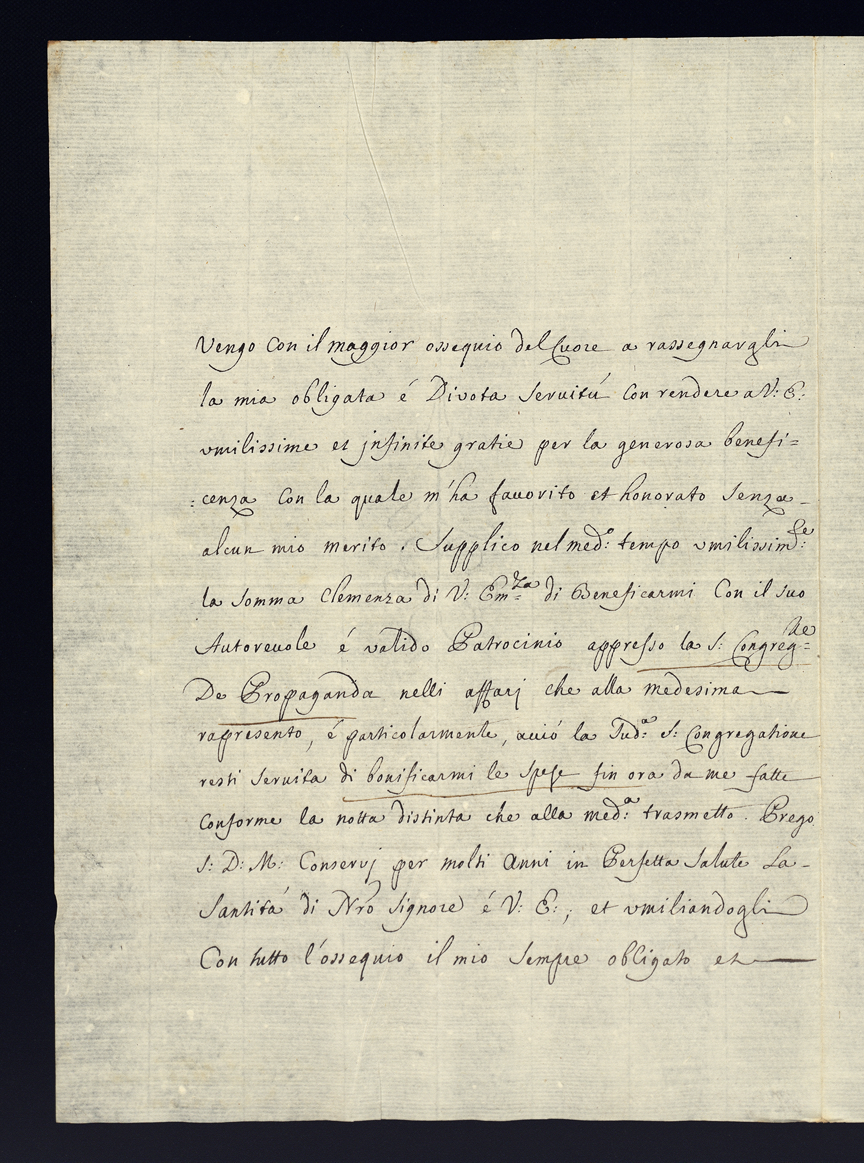 Vengo con il maggior ossequio del Cuore a rassegnargli
la mia obligata é Divota servitú con rendere a V: E:
vmilissime et jnfinite gratie per la generosa benefi=
:cenza con la quale m'ha favorito et honorato senza
alcun mio merito. Supplico nel med:º tempo vmilissim:te
la somma Clemenza di V: Em:za di Beneficarmi Con il suo
Autoreuole é valido Patrocinio appresso la S: Congreg:ne
De Propaganda nelli affarj che alla medesima
rapresento, é particolarmente, acció la Sud:a S: Congregatione
resti seruita di bonificarmi le spese fin ora da me fatte
Conforme la notta distinta che alla med:a trasmetto. Prego
S: D: M: Conservj per molti anni in Perfetta salute La
Santitá di Nro Signore é V: E:, et vmiliandogli
Con tutto l'ossequio il mio sempre obligato et